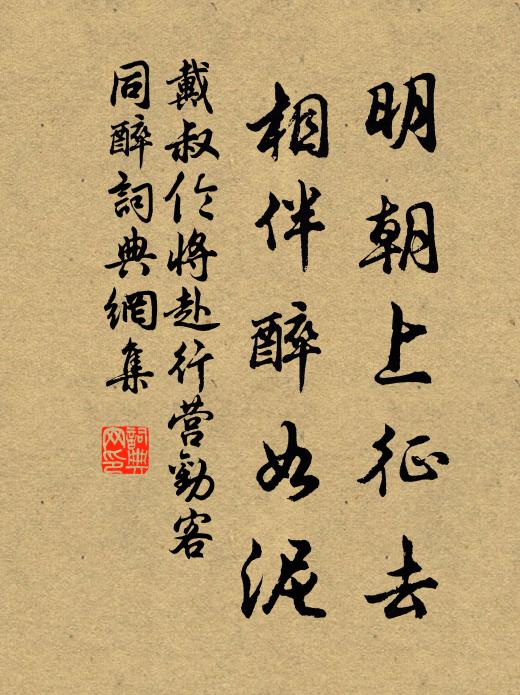 明朝上征去
相伴醉如泥
戴叔伦将赴行营劝客
同醉詞典網集
詞典
网印